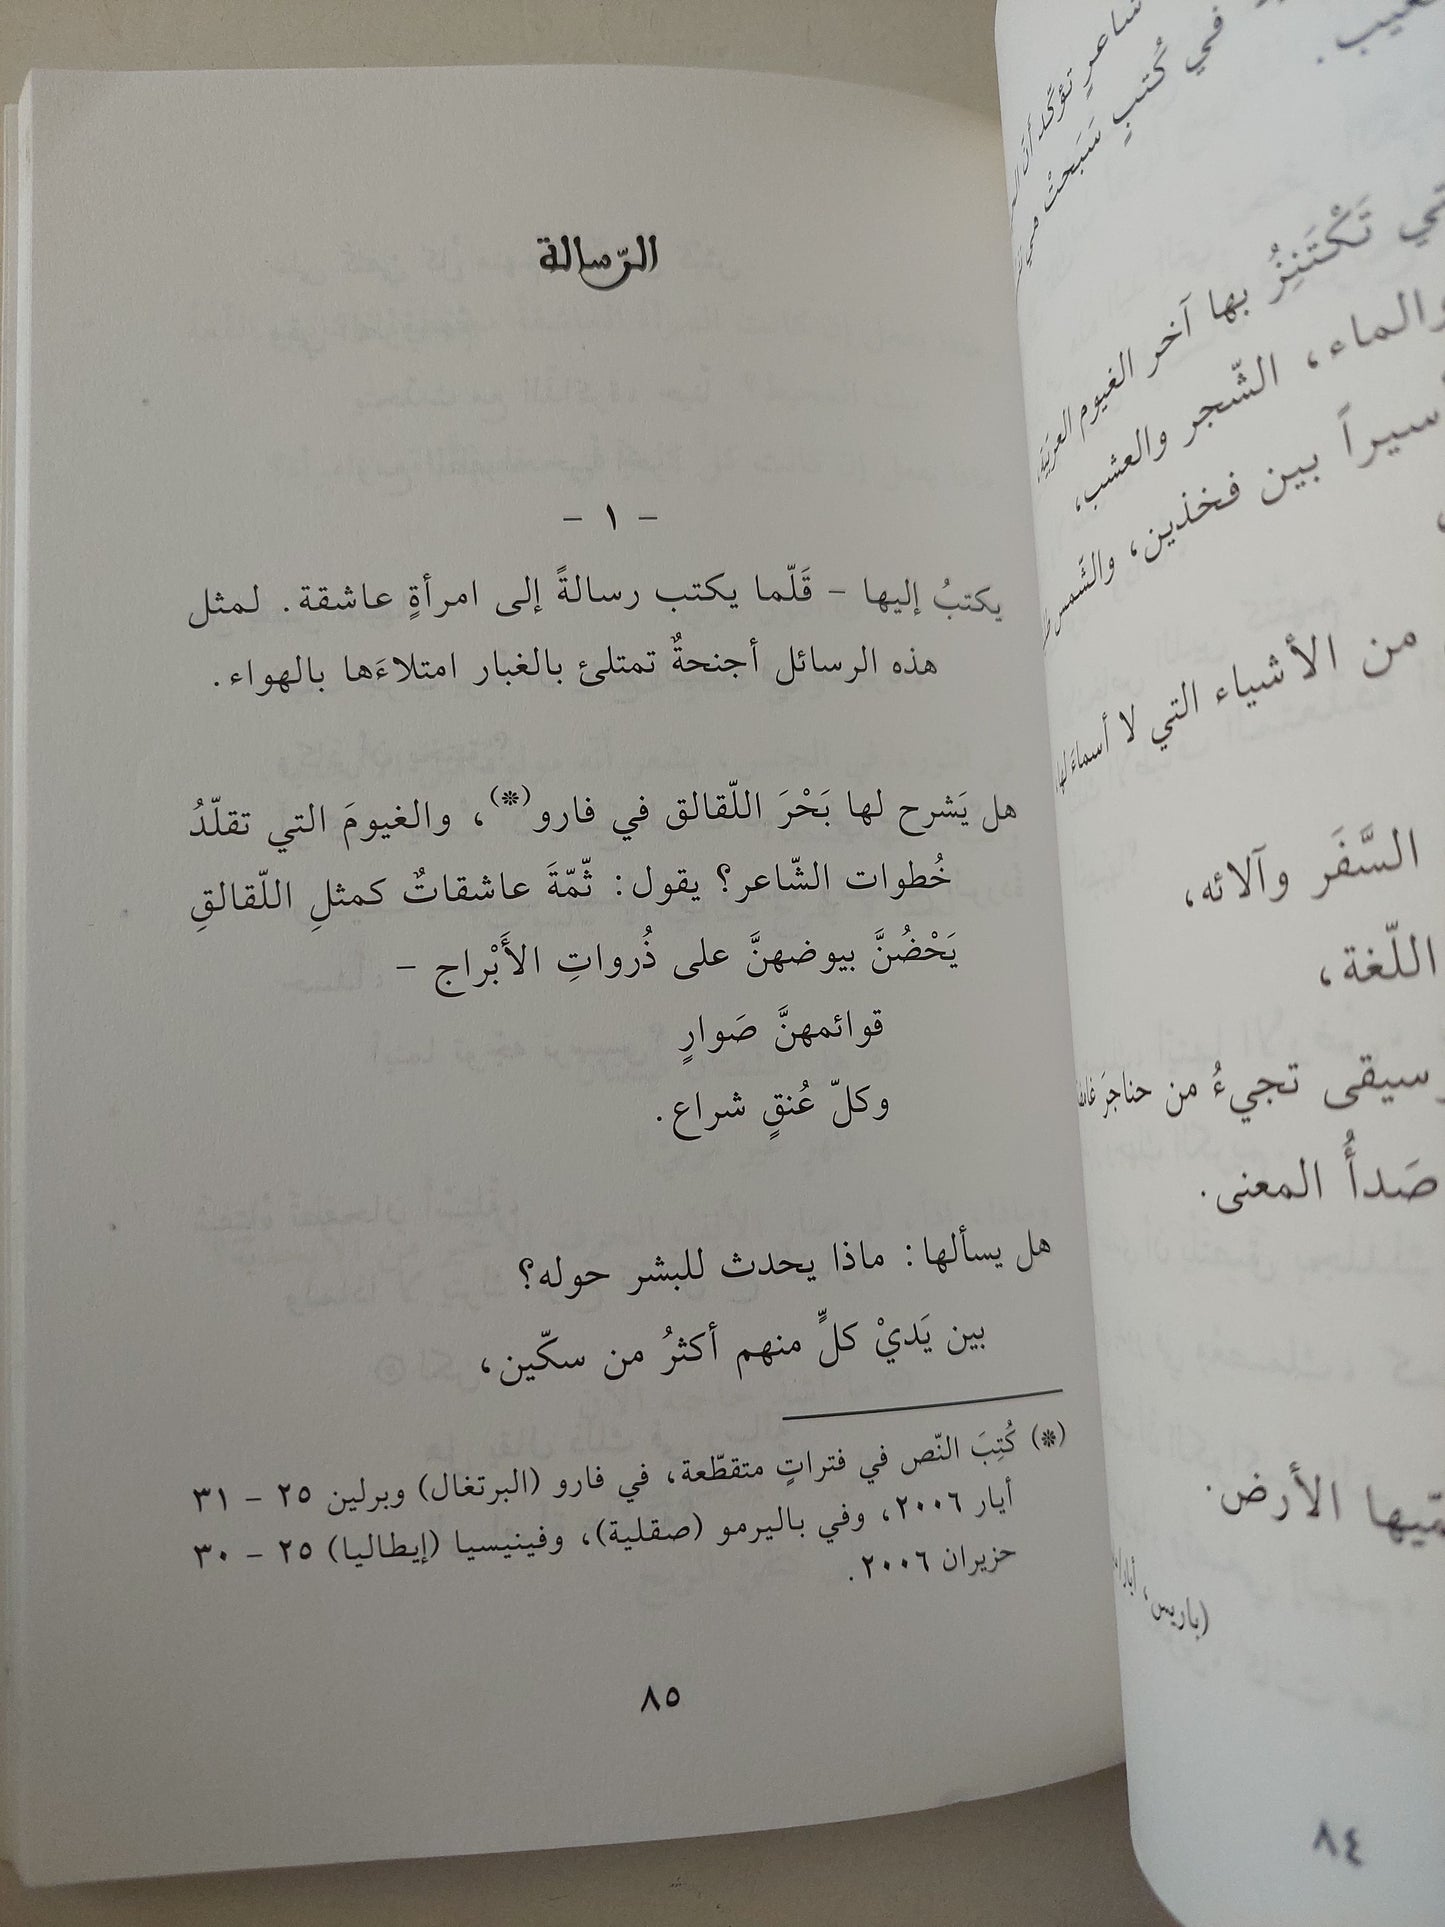 في كُتبٍ سَبحتْ في
تَكْتَنِزُ بها آخر الغيوم العربَيَّة،
والماء، الشّجر والعشب،
أسيراً بين فخذين، والشّمس
من الأشياء التي لا أسماءَ لها،
السَّفَر وآلائه،
اللّغة،
تجيءُ من حناجرَ
صَدأُ المعنى.
الأرض.
(باريس،
٨٤
الرّسالة
– ١ –
يكتبُ إليها – قَلّما يكتب رسالةً إلى امرأةٍ عاشقة. لمثل
هذه الرسائل أجنحةٌ تمتلئ بالغبار امتلاءَها بالهواء.
هل يَشرح لها بَحْرَ اللّقالق في فارو(*)، والغيومَ التي تقلّدُ
خُطوات الشّاعر؟ يقول: ثّمّةَ عاشقاتٌ كمثلِ اللّقالقِ
يَحْضُنَّ بيوضهنَّ على ذُرواتِ الأَبْراج –
قوائمهنَّ صَوارٍ
وكلّ عُنقٍ شراع.
هل يسألها: ماذا يحدث للبشر حوله؟
بين يَديْ كلٍّ منهم أكثرُ من سكّين،
(*) كُتِبَ النّص في فتراتٍ متقطّعة، في فارو (البرتغال) وبرلين ٢٥ – ٣١
أيار ٢٠٠٦، وفي باليرمو (صقلية)، وفينيسيا (إيطاليا) ٢٥ – ٣٠
حزيران ٢٠٠٦.
٨٥